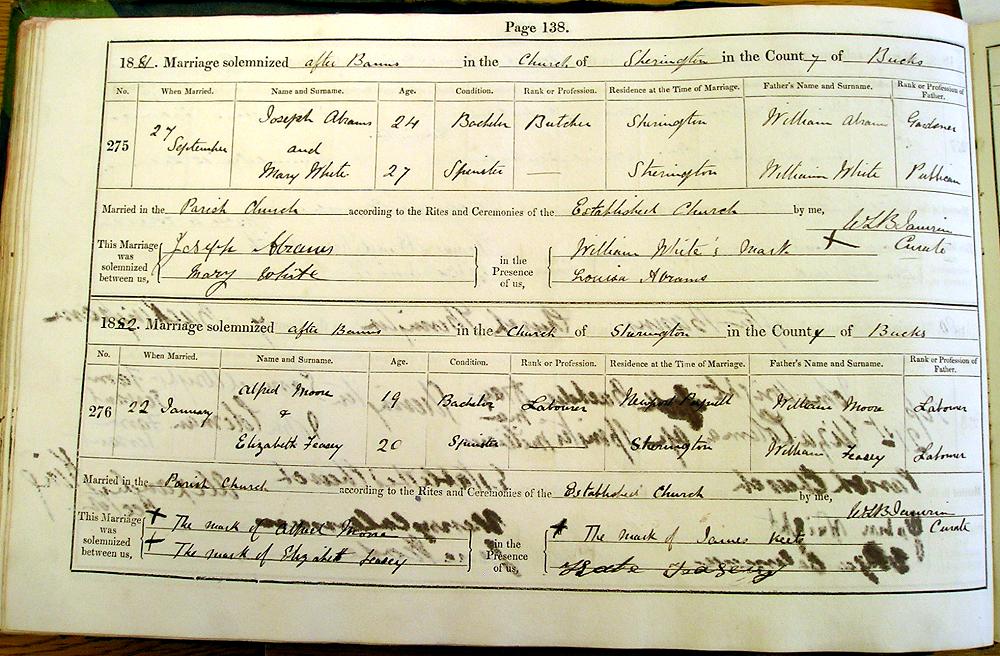 Page 138.
1881. Marriage solemnized after Banns in the Church of Sherington in the County of Bucks
No. When Married. Name and Surname. Age. Condition. Rank or Profession. Residence at the Time of Marriage. Father's Name and Surname. Rank or Profession of Father.
275 27 September Joseph Abrams 24 Bachelor Butcher Sherington William Abrams Gardener
and
Mary White 27 Spinster — Sherington William White Publican
Married in the Parish Church according to the Rites and Ceremonies of the Established Church by me,
Curate
This Marriage was solemnized between us, Joseph Abrams in the Presence of us, William White's Mark X
Mary White Louisa Abrams
1882. Marriage solemnized after Banns in the Church of Sherington in the County of Bucks
No. When Married. Name and Surname. Age. Condition. Rank or Profession. Residence at the Time of Marriage. Father's Name and Surname. Rank or Profession of Father.
276 22 January Alfred Moore 19 Bachelor Labourer Newport Pagnell William Moore Labourer
&
Elizabeth Feasey 20 Spinster Sherington William Feasey Labourer
Married in the Parish Church according to the Rites and Ceremonies of the Established Church by me,
Curate
This Marriage was solemnized between us, X The mark of Alfred Moore in the Presence of us, X The mark of James
X The mark of Elizabeth Feasey Kate Feasey